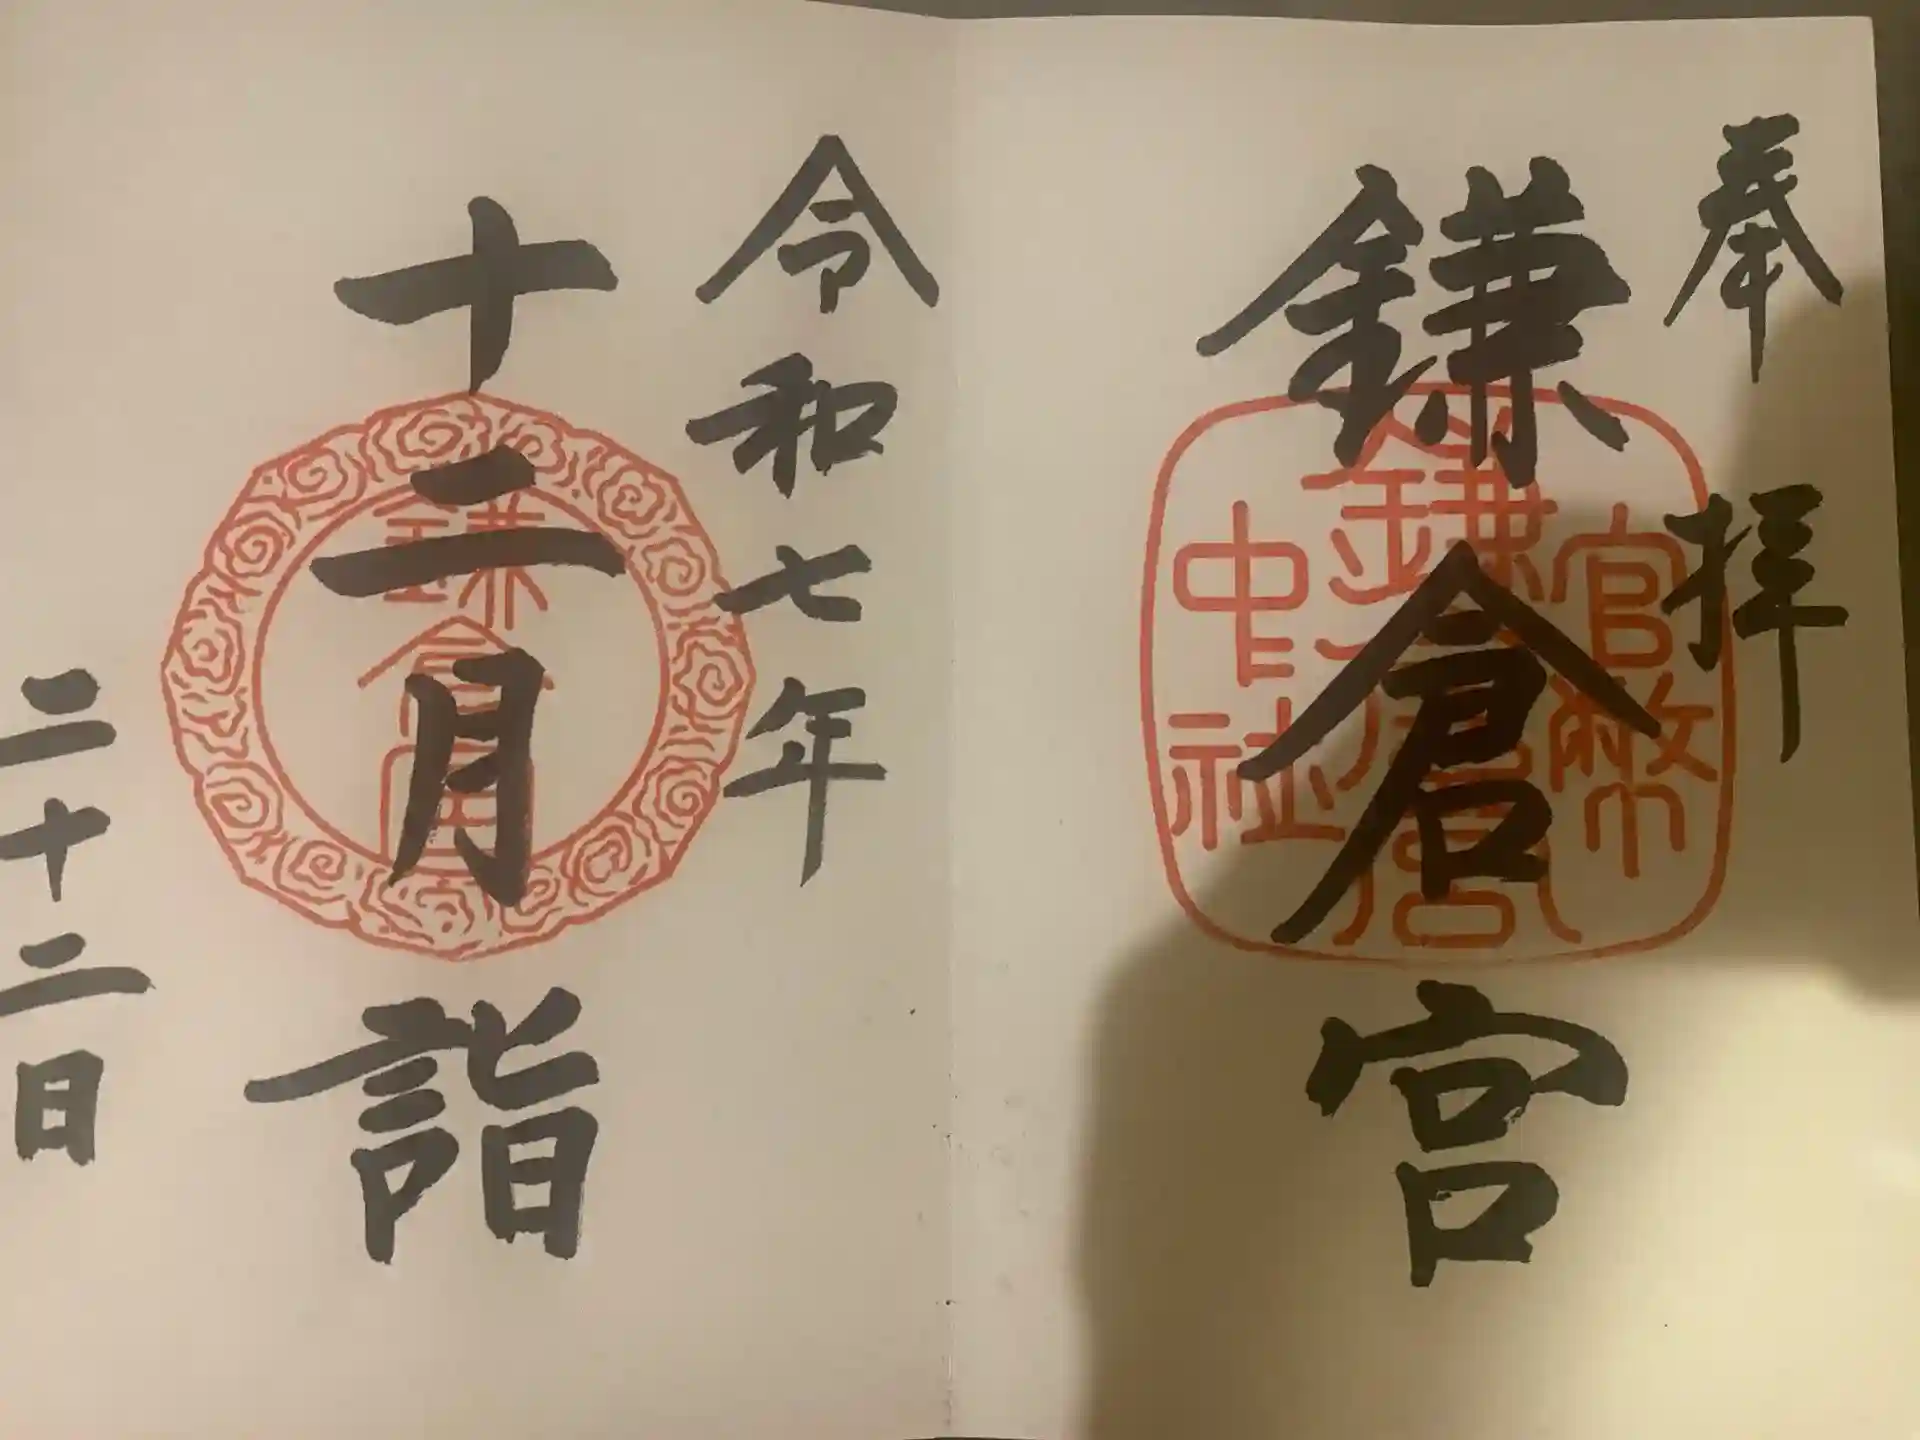 奉拝
鎌倉宮
官幣
鎌倉宮
中社
令和七年
十二月詣
鎌倉宮
二十二日